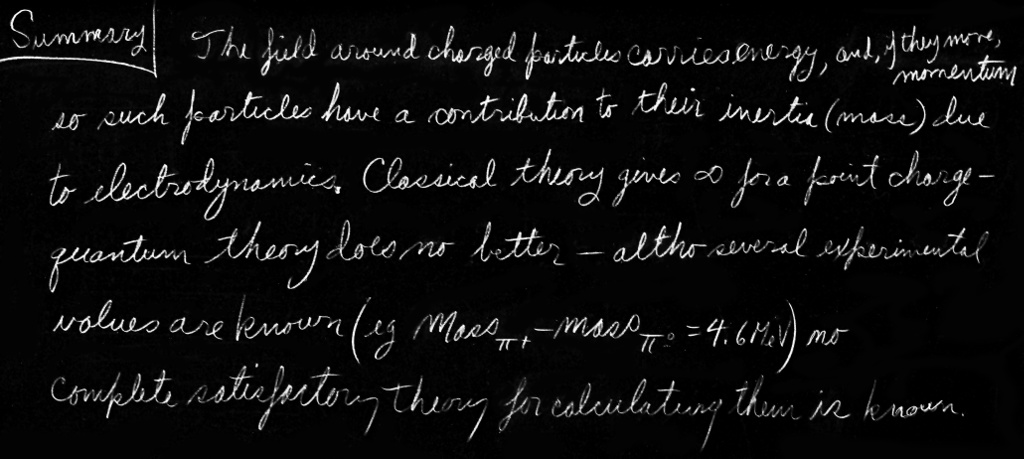 Summary The field around charged particles carries energy, and, if they move, momentum
so such particles have a contribution to their inertia (mass) due
to electrodynamics. Classical theory gives ∞ for a point charge –
quantum theory does no better – altho several experimental
values are known (eg Mass π+ – mass π° = 4.6 MeV) no
complete satisfactory theory for calculating them is known.